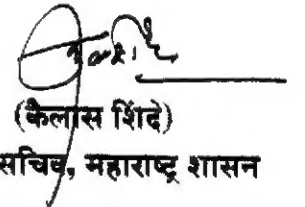 (कैलास शिंदे)
सचिव, महाराष्ट्र शासन